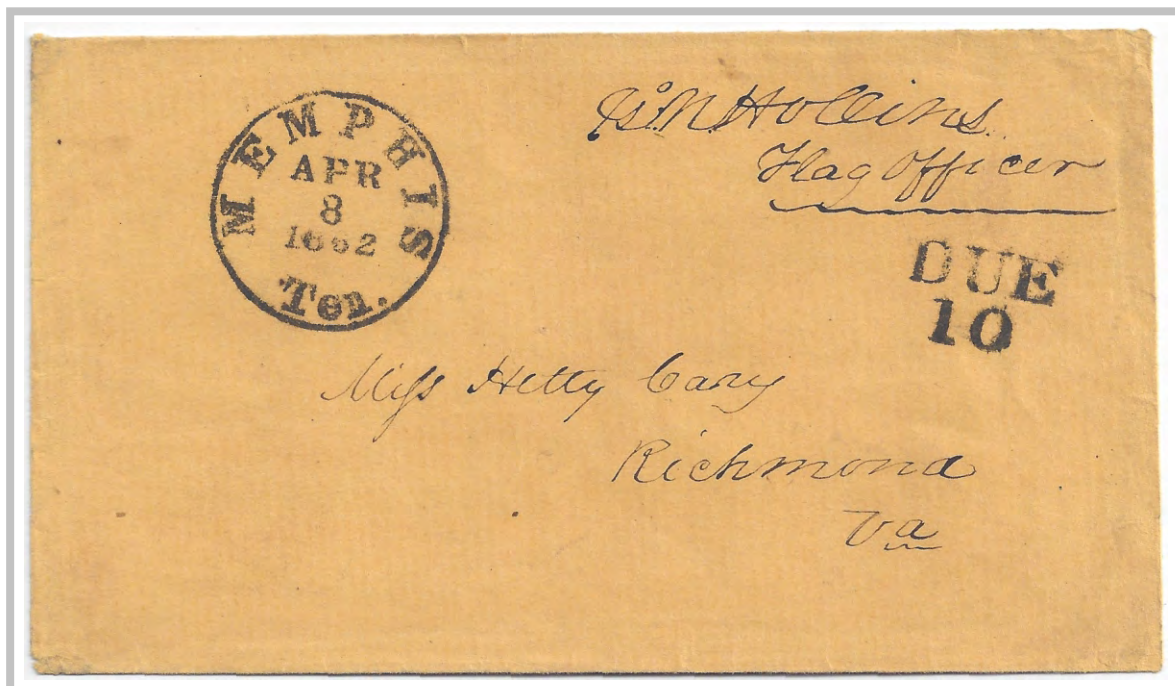 MEMPHIS
APR
8
1862
Ten.
G. N. Hollins
Flag Officer
DUE
10
Miss Hetty Cary
Richmond
Va